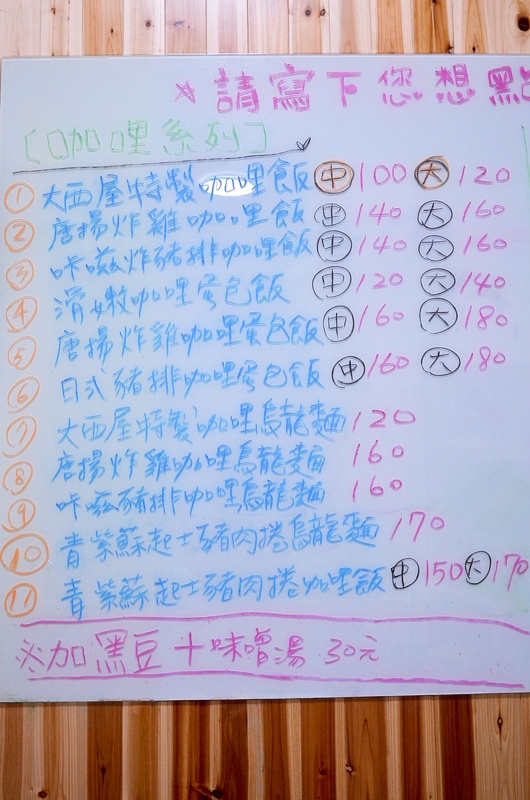 *請寫下您想點
〔咖哩系列〕
① 大西屋特製咖哩飯 中 100 大 120
② 唐揚炸雞咖哩飯 中 140 大 160
③ 咔嗞炸豬排咖哩飯 中 140 大 160
④ 滑嫩咖哩蛋包飯 中 120 大 140
⑤ 唐揚炸雞咖哩蛋包飯 中 160 大 180
⑥ 日式豬排咖哩蛋包飯 中 160 大 180
⑦ 大西屋特製咖哩烏龍麵 120
⑧ 唐揚炸雞咖哩烏龍麵 160
⑨ 咔嗞豬排咖哩烏龍麵 160
⑩ 青紫蘇起士豬肉捲烏龍麵 170
⑪ 青紫蘇起士豬肉捲咖哩飯 中 150 大 170
※加黑豆+味噌湯 30元